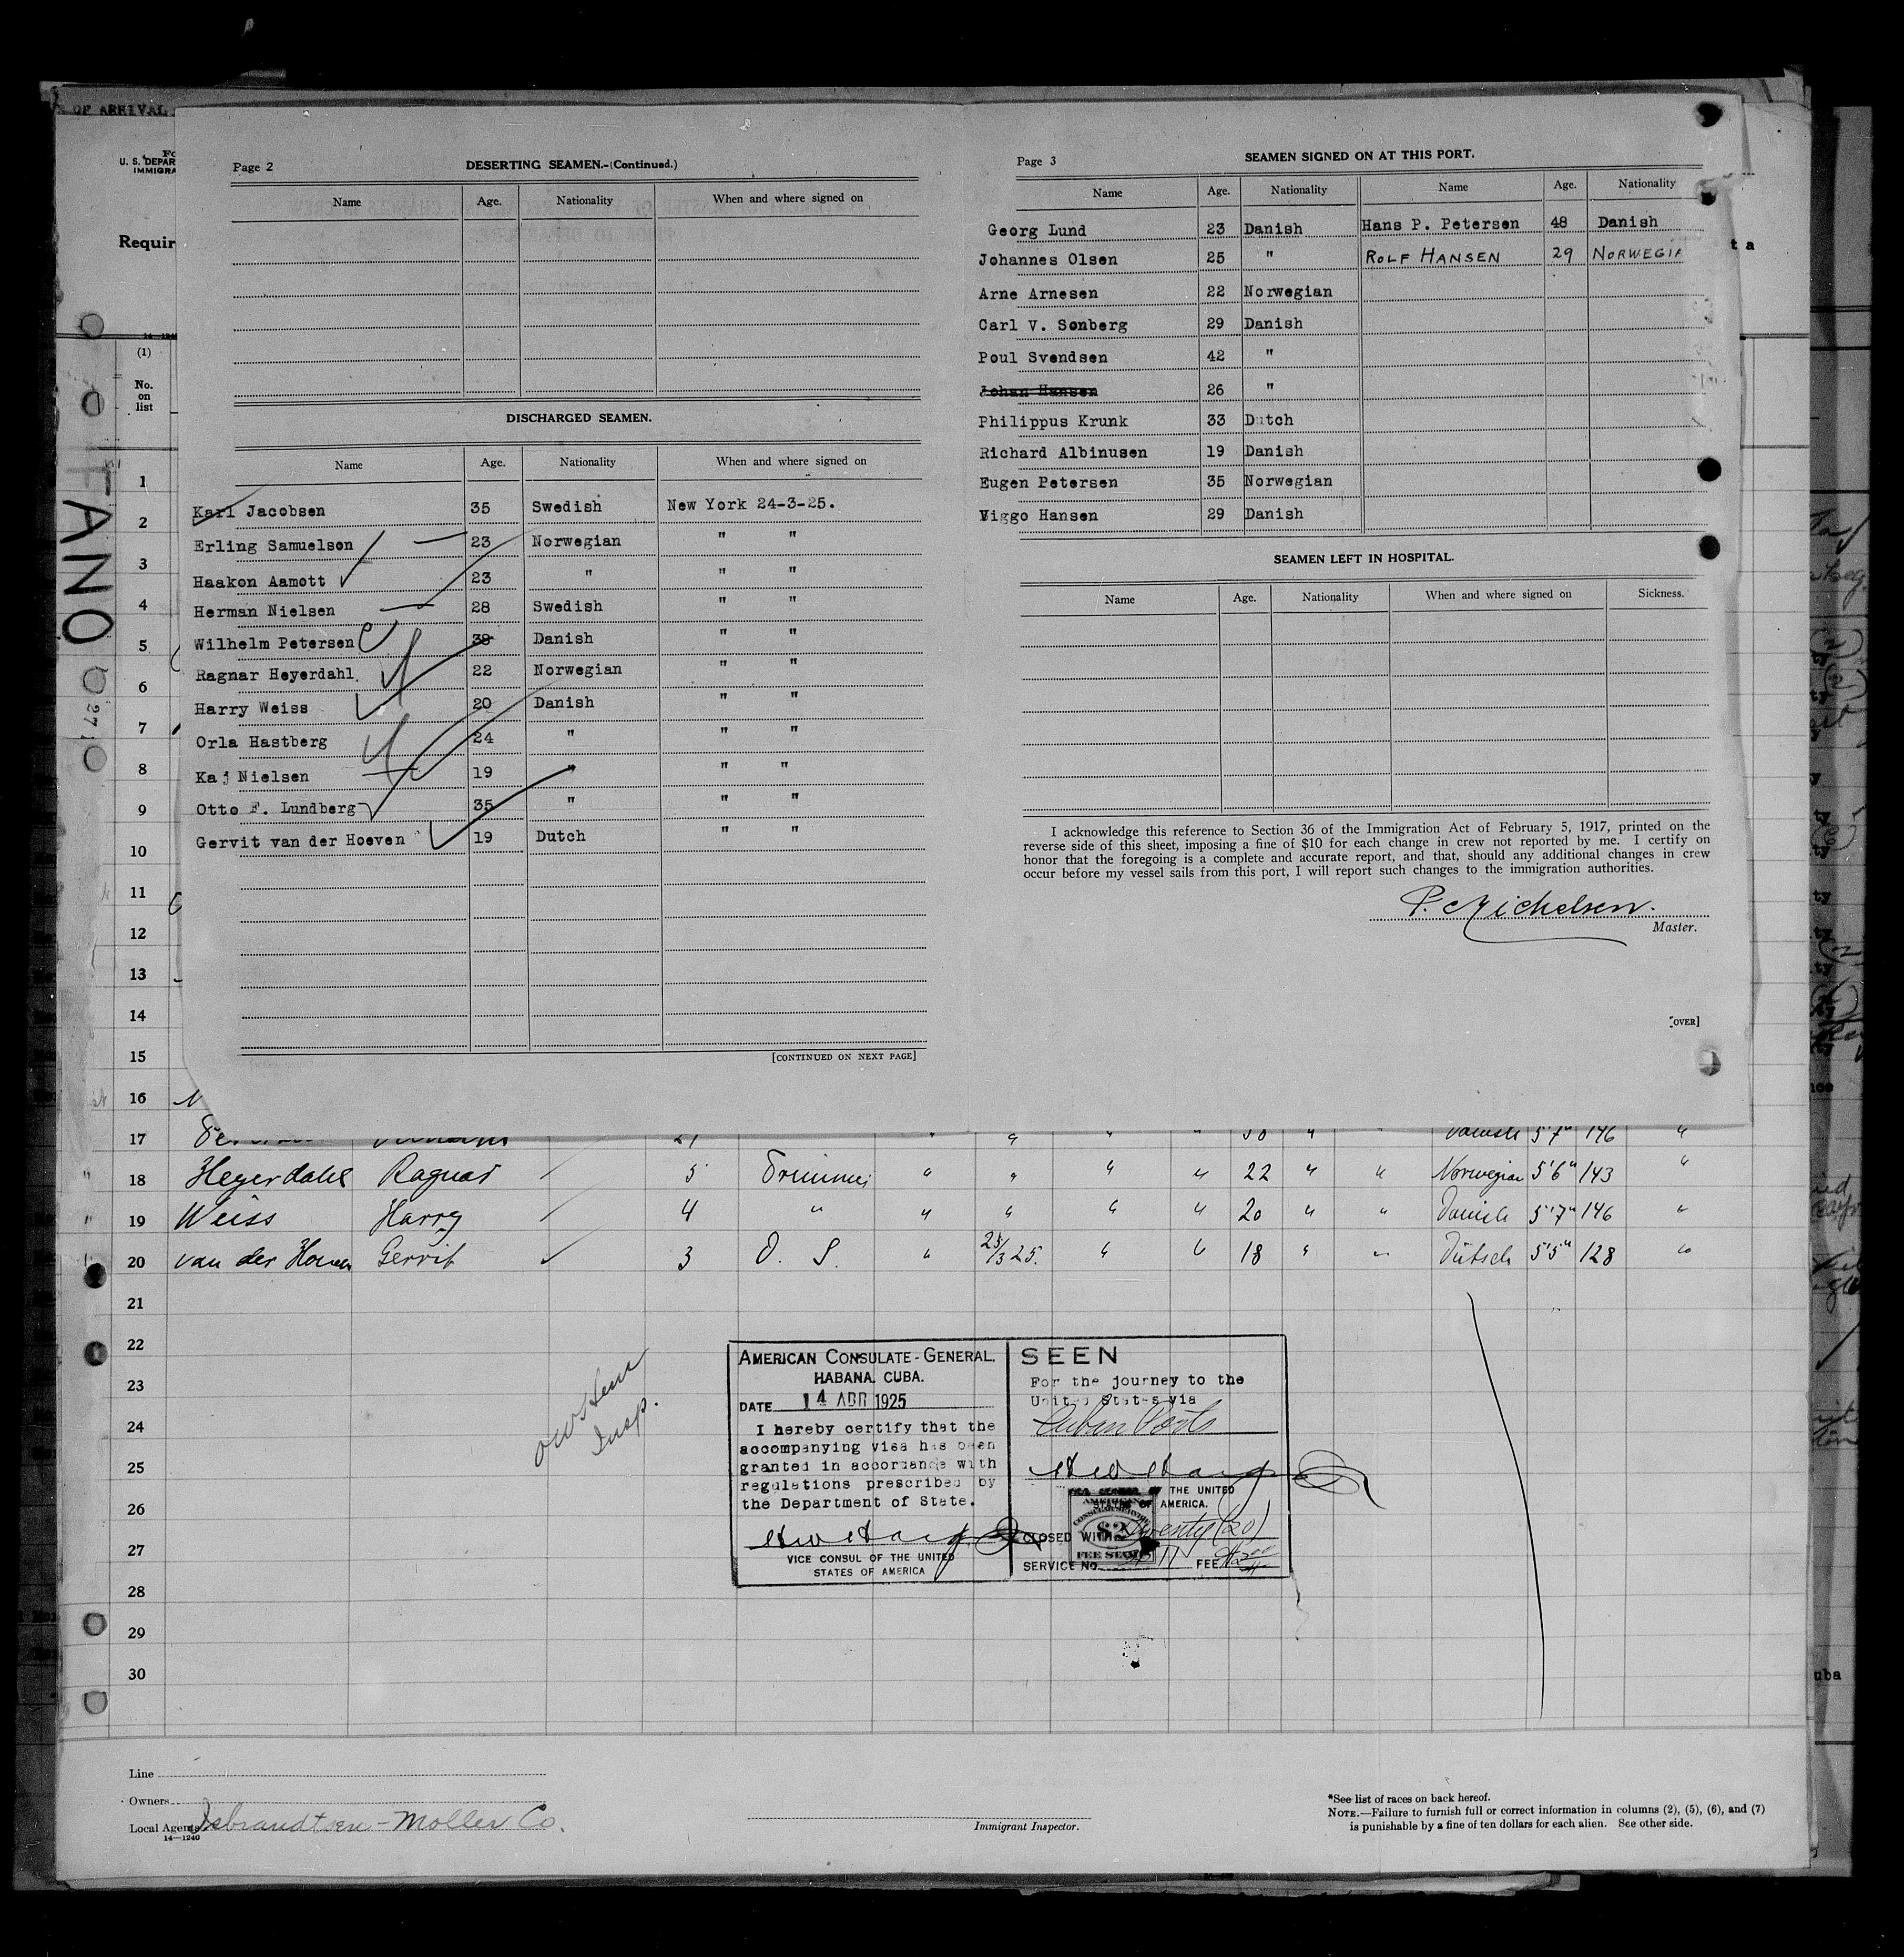 OF ARRIVAL
U. S. DEPAR
IMMIGRA
Requir
t a
FANO
(1)
No.
on
list
Page 2
DESERTING SEAMEN.-(Continued.)
Name Age. Nationality When and where signed on
DISCHARGED SEAMEN.
Name Age. Nationality When and where signed on
Karl Jacobsen 35 Swedish New York 24-3-25.
Erling Samuelson 23 Norwegian " "
Haakon Aamott 23 " " "
Herman Nielsen 28 Swedish " "
Wilhelm Petersen 38 Danish " "
Ragnar Heyerdahl. 22 Norwegian " "
Harry Weiss 20 Danish " "
Orla Hastberg 24 " " "
Kaj Nielsen 19 " " "
Otto F. Lundberg 35 " " "
Gervit van der Hoeven 19 Dutch " "
[CONTINUED ON NEXT PAGE]
Page 3
SEAMEN SIGNED ON AT THIS PORT.
Name Age. Nationality Name Age. Nationality
Georg Lund 23 Danish Hans P. Petersen 48 Danish
Johannes Olsen 25 " ROLF HANSEN 29 NORWEGIA
Arne Arnesen 22 Norwegian
Carl V. Sønberg 29 Danish
Poul Svendsen 42 "
Johan Hansen 26 "
Philippus Krunk 33 Dutch
Richard Albinusen 19 Danish
Eugen Petersen 35 Norwegian
Viggo Hansen 29 Danish
SEAMEN LEFT IN HOSPITAL.
Name Age. Nationality When and where signed on Sickness.
I acknowledge this reference to Section 36 of the Immigration Act of February 5, 1917, printed on the
reverse side of this sheet, imposing a fine of $10 for each change in crew not reported by me. I certify on
honor that the foregoing is a complete and accurate report, and that, should any additional changes in crew
occur before my vessel sails from this port, I will report such changes to the immigration authorities.
P. Michelsen.
Master.
[OVER]
1
2
3
4
5
6
7
8
9
10
11
12
13
14
15
16
17 21 " " " " 38 " " Danish 5'7" 146 "
18 Heyerdahl Ragnar 5 Trimmer " " " " 22 " " Norwegian 5'6" 143 "
19 Weiss Harry 4 " " " " " 20 " " Danish 5'7" 146 "
20 van der Hoeven Gervit 3 O. S. " 25/3 25. " " 18 " " Dutsch 5'5" 128 "
21
22
23
24
25
26
27
28
29
30
Insp.
AMERICAN CONSULATE-GENERAL.
HABANA. CUBA.
DATE 14 ABR 1925
I hereby certify that the
accompanying visa has been
granted in accordance with
regulations prescribed by
the Department of State.
VICE CONSUL OF THE UNITED
STATES OF AMERICA
SEEN
For the journey to the
United States via
Cuban Ports
OF THE UNITED
STATES OF AMERICA.
AMERICAN
CONSULAR SERVICE
$2
FEE STAMP
CLOSED WITH Twenty (20)
SERVICE NO. FEE
Line
Owners
Local Agents Isbrandtsen-Moller Co.
14—1240
Immigrant Inspector.
*See list of races on back hereof.
NOTE.—Failure to furnish full or correct information in columns (2), (5), (6), and (7)
is punishable by a fine of ten dollars for each alien. See other side.
uba